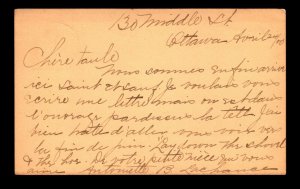 30 Middle St
Ottawa
Chère tante
nous sommes enfin arrivé
ici saint et sauf je voulais vous
écrire une lettre mais on est dans
l'ouvrage par dessus la tête j'ai
bien hâte d'aller vous voir vers
la fin de juin
the votre petite nièce qui vous
aime Antoinette B